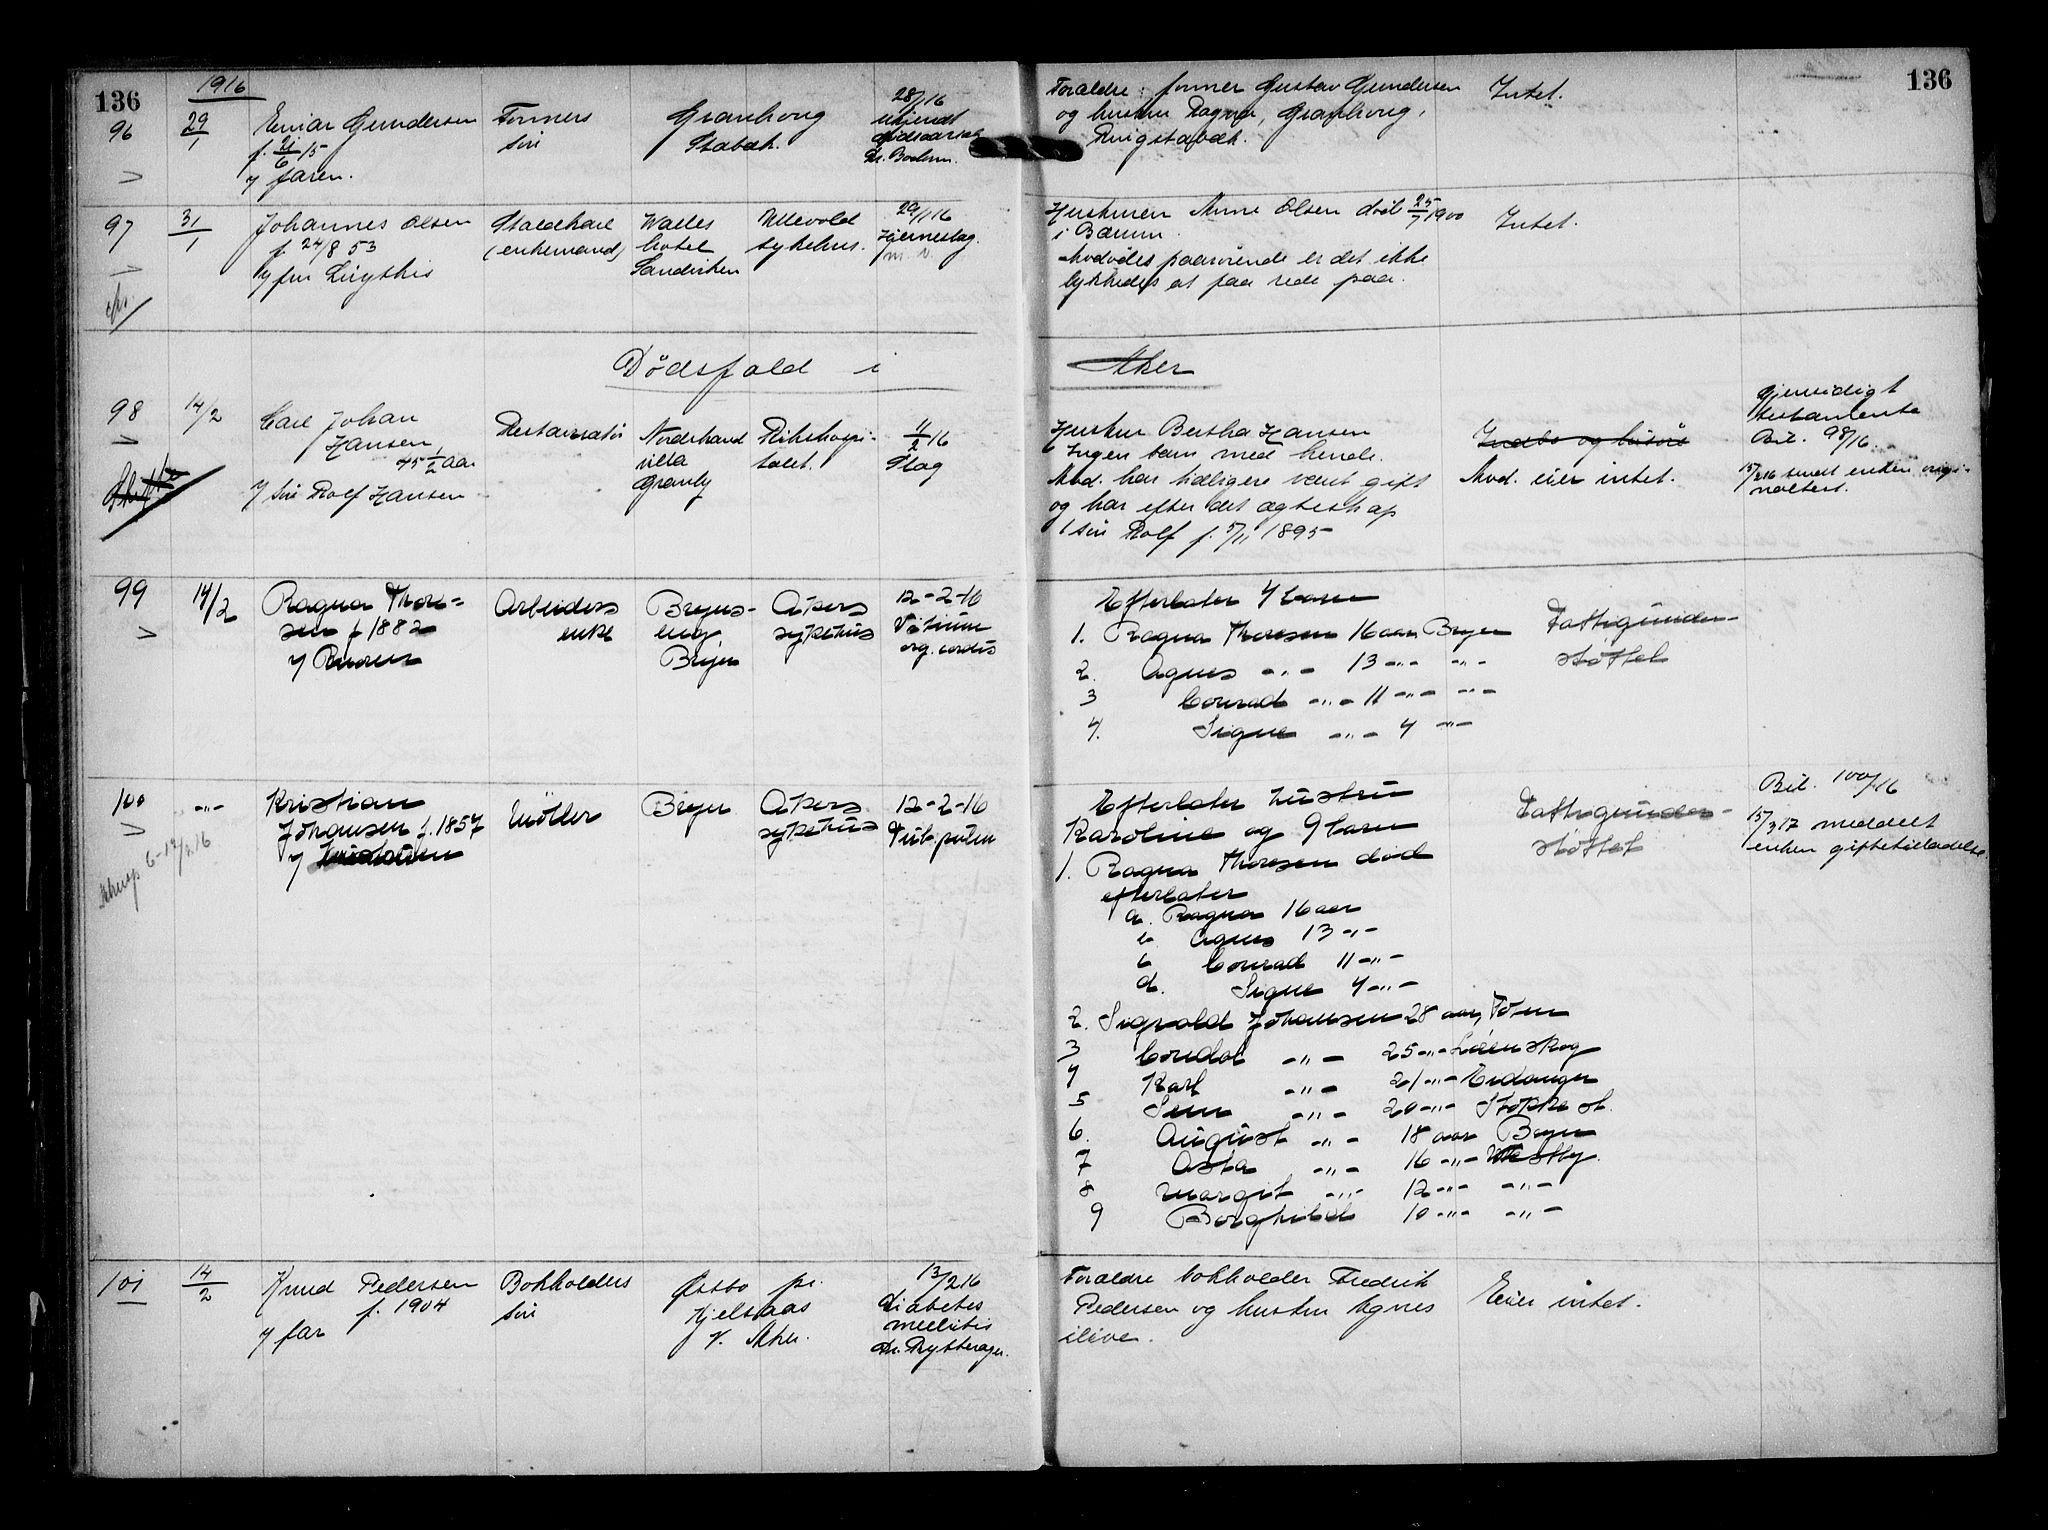 136
1916
96
29/1
Einar Gundersen
f. 21/6 15
v/ faren.
Formers
søn
Granhoug
Stabæk.
28/1 16
ukjendt
dødsaarsag
Dr.
Forældre: former Gustav Gundersen
og hustru Ragna, Granhoug,
Ringstabæk.
Intet.
136
97
31/1
Johannes Olsen
f. 24/8 53
v/ fru
Staldkarl
(enkemand)
Walles
hotel
Sandviken
Ullevold
sykehus.
29/1 16
Hjerneslag.
Hustruen Anne Olsen død 25/7 1900
i Bærum.
Avdødes paarørende er det ikke
lykkedes at faa rede paa.
Intet.
Dødsfald i
Aker
98
14/2
Carl Johan
Hansen
45 1/2 aar
v/ søn Rolf Hansen
Restauratør
Nordstrand
villa
Granly
Rikshospi-
talet.
11/2 16
Slag
Hustru Bertha Hansen
Ingen barn med hende.
Avd. har tidligere vært gift
og har efter det ægteskap
1 søn Rolf f. 5/11 1895
Indbo og løsøre
Avd. eier intet.
gjensidigt
testamente
Bil. 98/16.
15/2 16 sendt enken origi-
naltest.
99
14/2
Ragna Thore-
sen f 1882
v/ Broren
Arbeiders
enke
Bryns-
eng
Bryn
Akers
sykehus
12-2-16
Vitium
org. cordis
Efterlater 4 barn
1. Ragna Thoresen 16 aar, Bryn
2. Agnes -"- 13 -"- -"-
3 Conrad -"- 11 -"- -"-
4. Signe -"- 4 -"-
Fattigunder-
støttet
100
-"-
Kristian
Johansen f. 1857
v/
6-12/2.16
Møller
Bryn
Akers
sykehus
12-2-16
Tub. pulm
Efterlater hustru
Karoline og 9 barn
1. Ragna Thoresen død
efterlater
a. Ragna 16 aar
b Agnes 13 -"-
c Conrad 11 -"-
d. Signe 4 -"-
2. Sigvald Johansen 28 aar,
3 -"- 25 -"- Lørenskog
4 Karl -"- 21 -"- Eidanger
5 -"- 20 -"- Stokke st.
6. August -"- 18 aar Bryn
7 Asta -"- 16 -"- Vestby.
8 Margit -"- 12 -"- -"-
9 Borghild 10 -"- -"-
Fattigunder-
støttet
Bil. 100/16
15/3 17 meddelt
enken giftetilladelse.
101
14/2
Knud Pedersen
f. 1904
v/ far
Bokholders
søn
Østbo pr.
Kjelsaas
v. Aker.
13/2 16
Diabetes
mellitis
Dr. Rytterager.
Forældre bokholder Fredrik
Pedersen og hustru Agnes
ilive.
Eier intet.